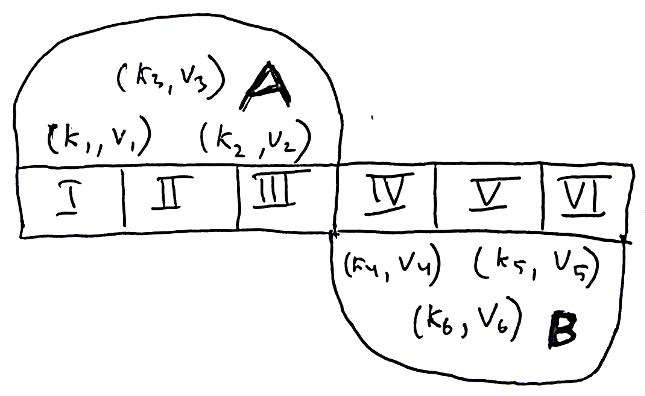 (k₃, v₃) A
(k₁, v₁) (k₂, v₂)
I II III IV V VI
(k₄, v₄) (k₅, v₅)
(k₆, v₆) B